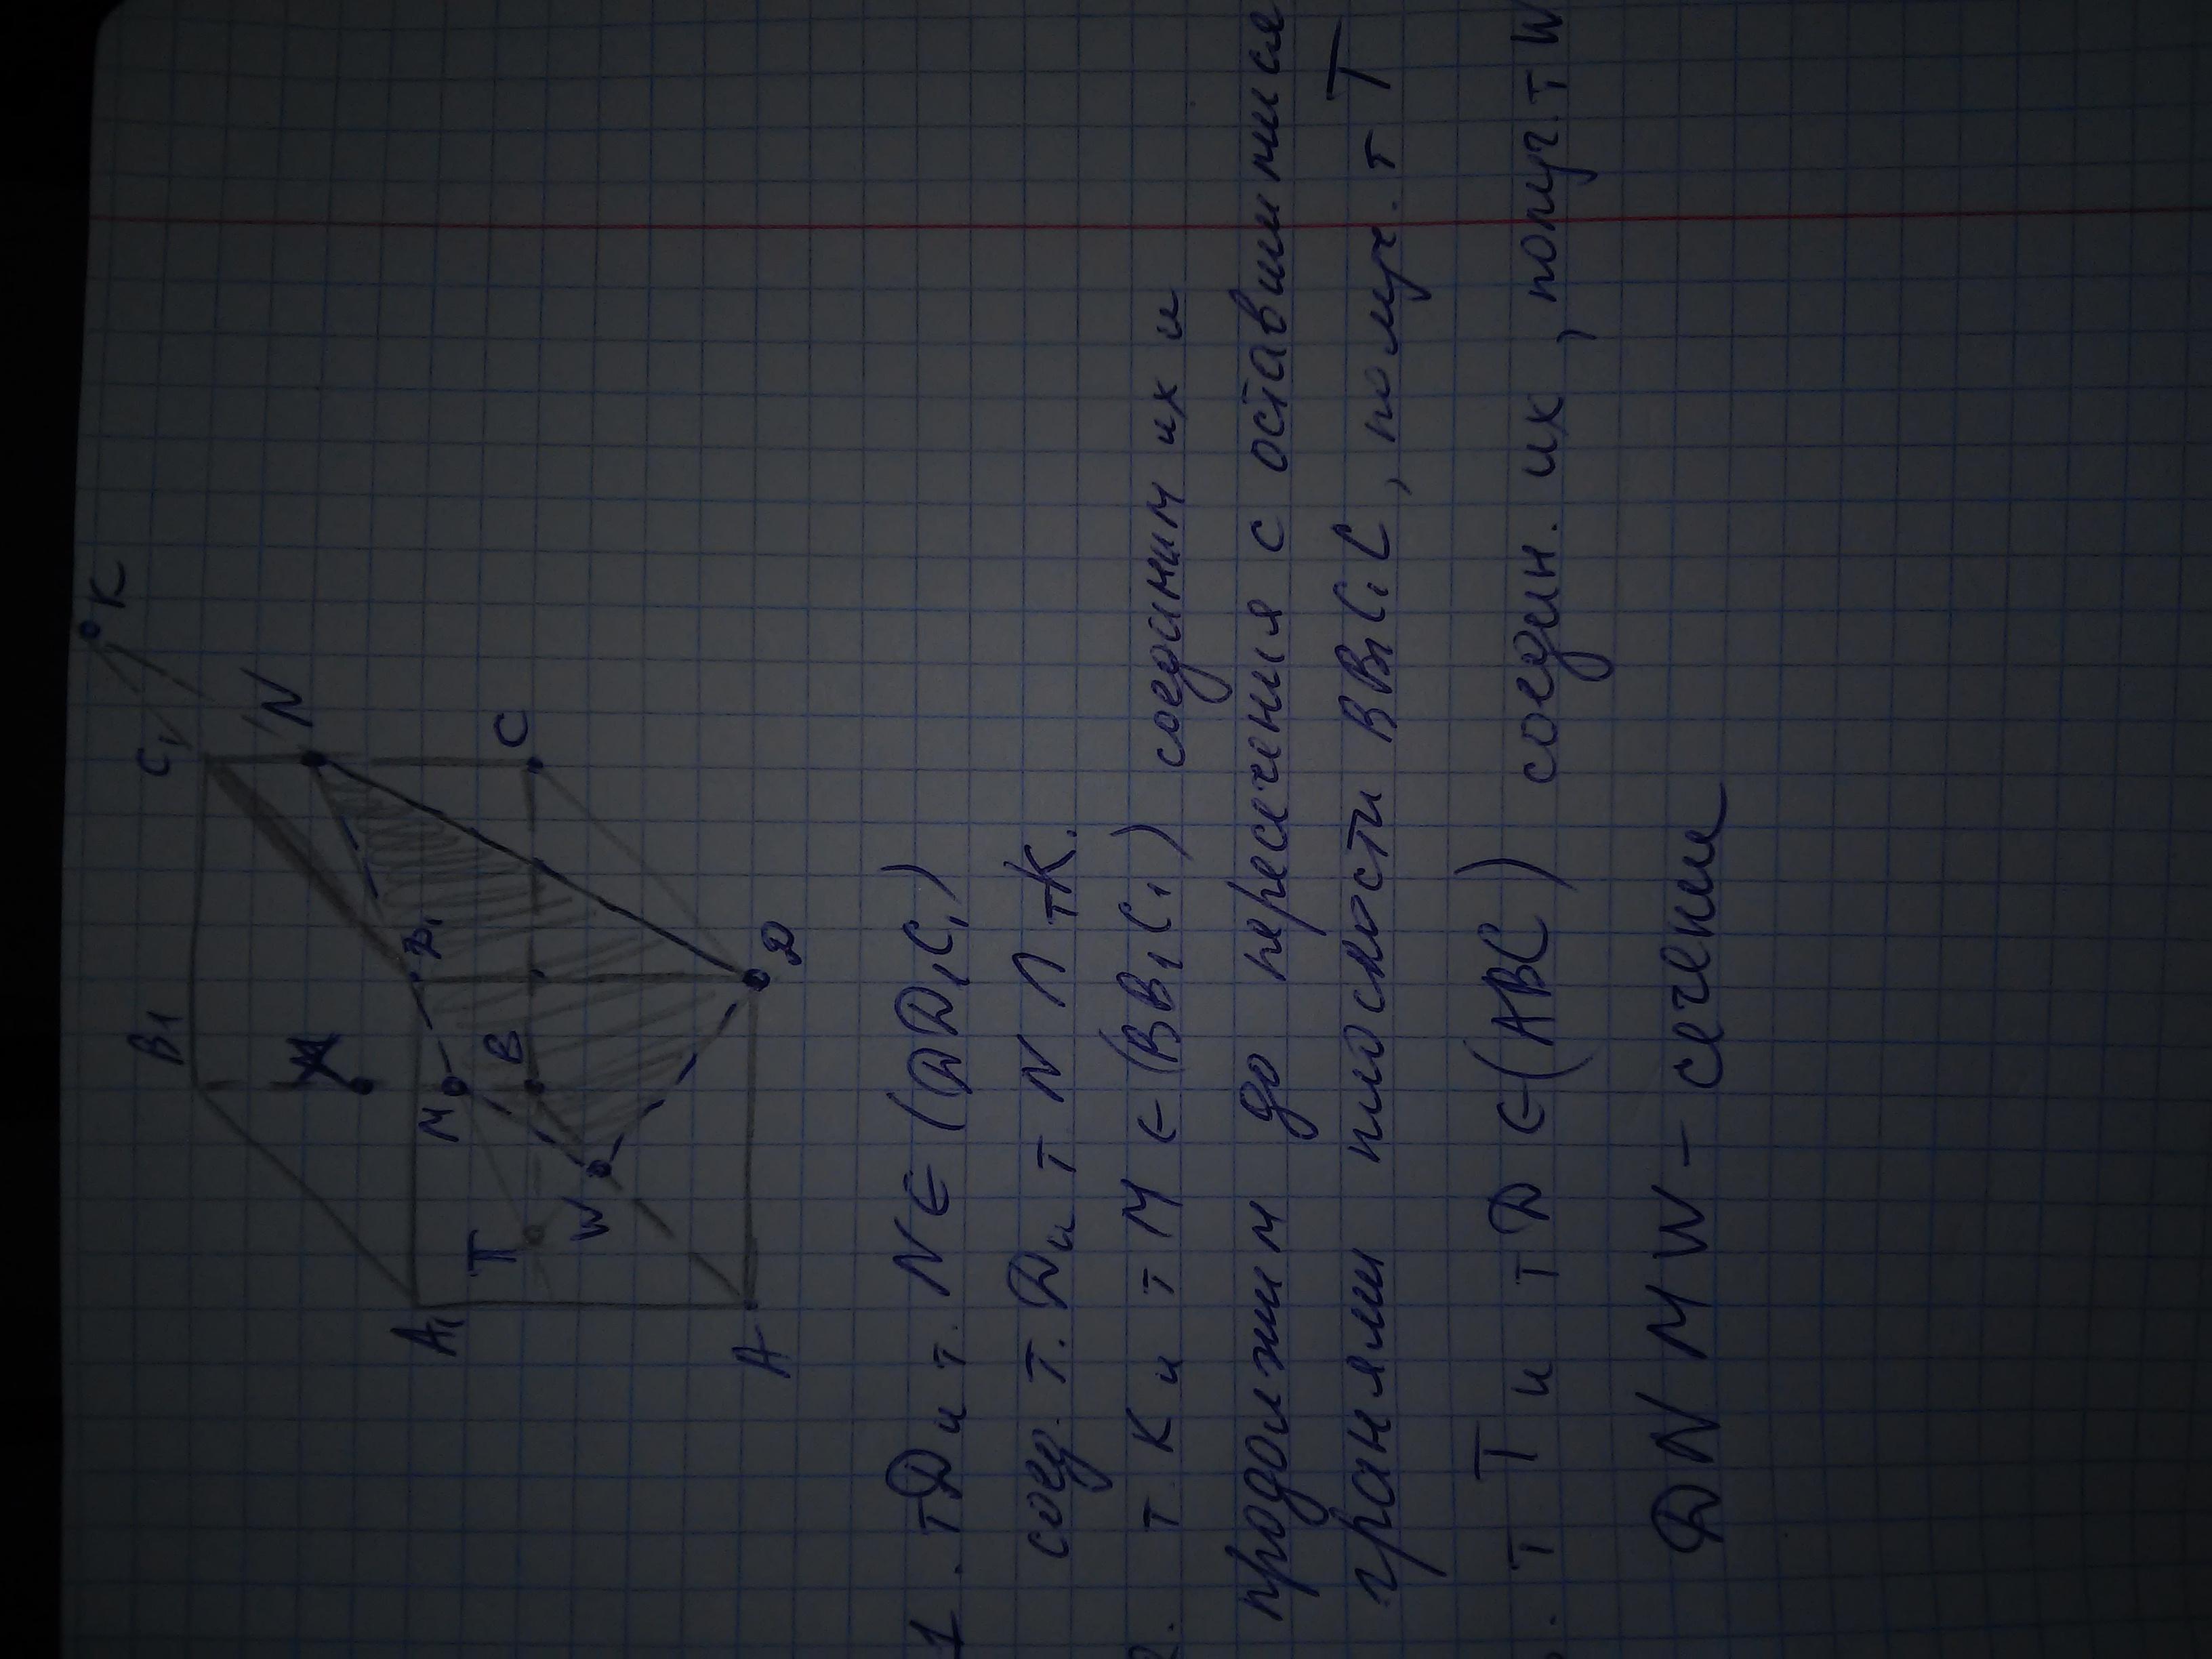 K
C₁
B1
N
D₁
M
B
C
T
W
A₁
D
A
1. т D и т. N ∈ (DD₁C₁)
соед. т. D и т N Л тК.
2. т К и т М ∈ (BB₁C₁) соединим их и
продолжим до пересечения с оставшимися
гранями плоскости BB₁C₁C, получ. т T
т T и т D ∈ (ABC) соедин. их, получ. т W
DNMW - сечение